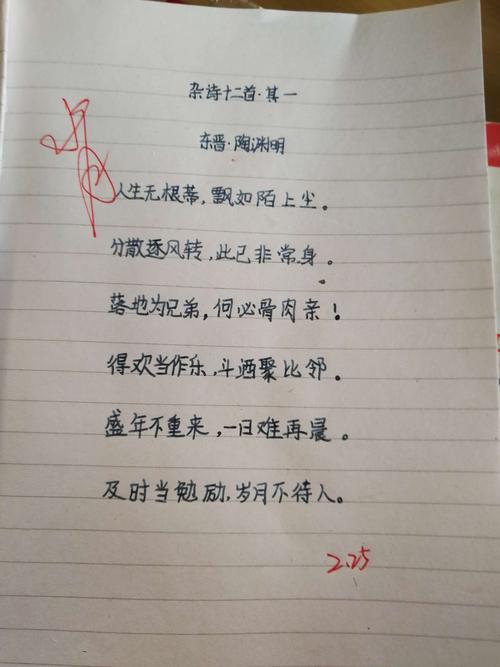 杂诗十二首·其一
东晋·陶渊明
人生无根蒂，飘如陌上尘。
分散逐风转，此已非常身。
落地为兄弟，何必骨肉亲！
得欢当作乐，斗酒聚比邻。
盛年不重来，一日难再晨。
及时当勉励，岁月不待人。
2.25